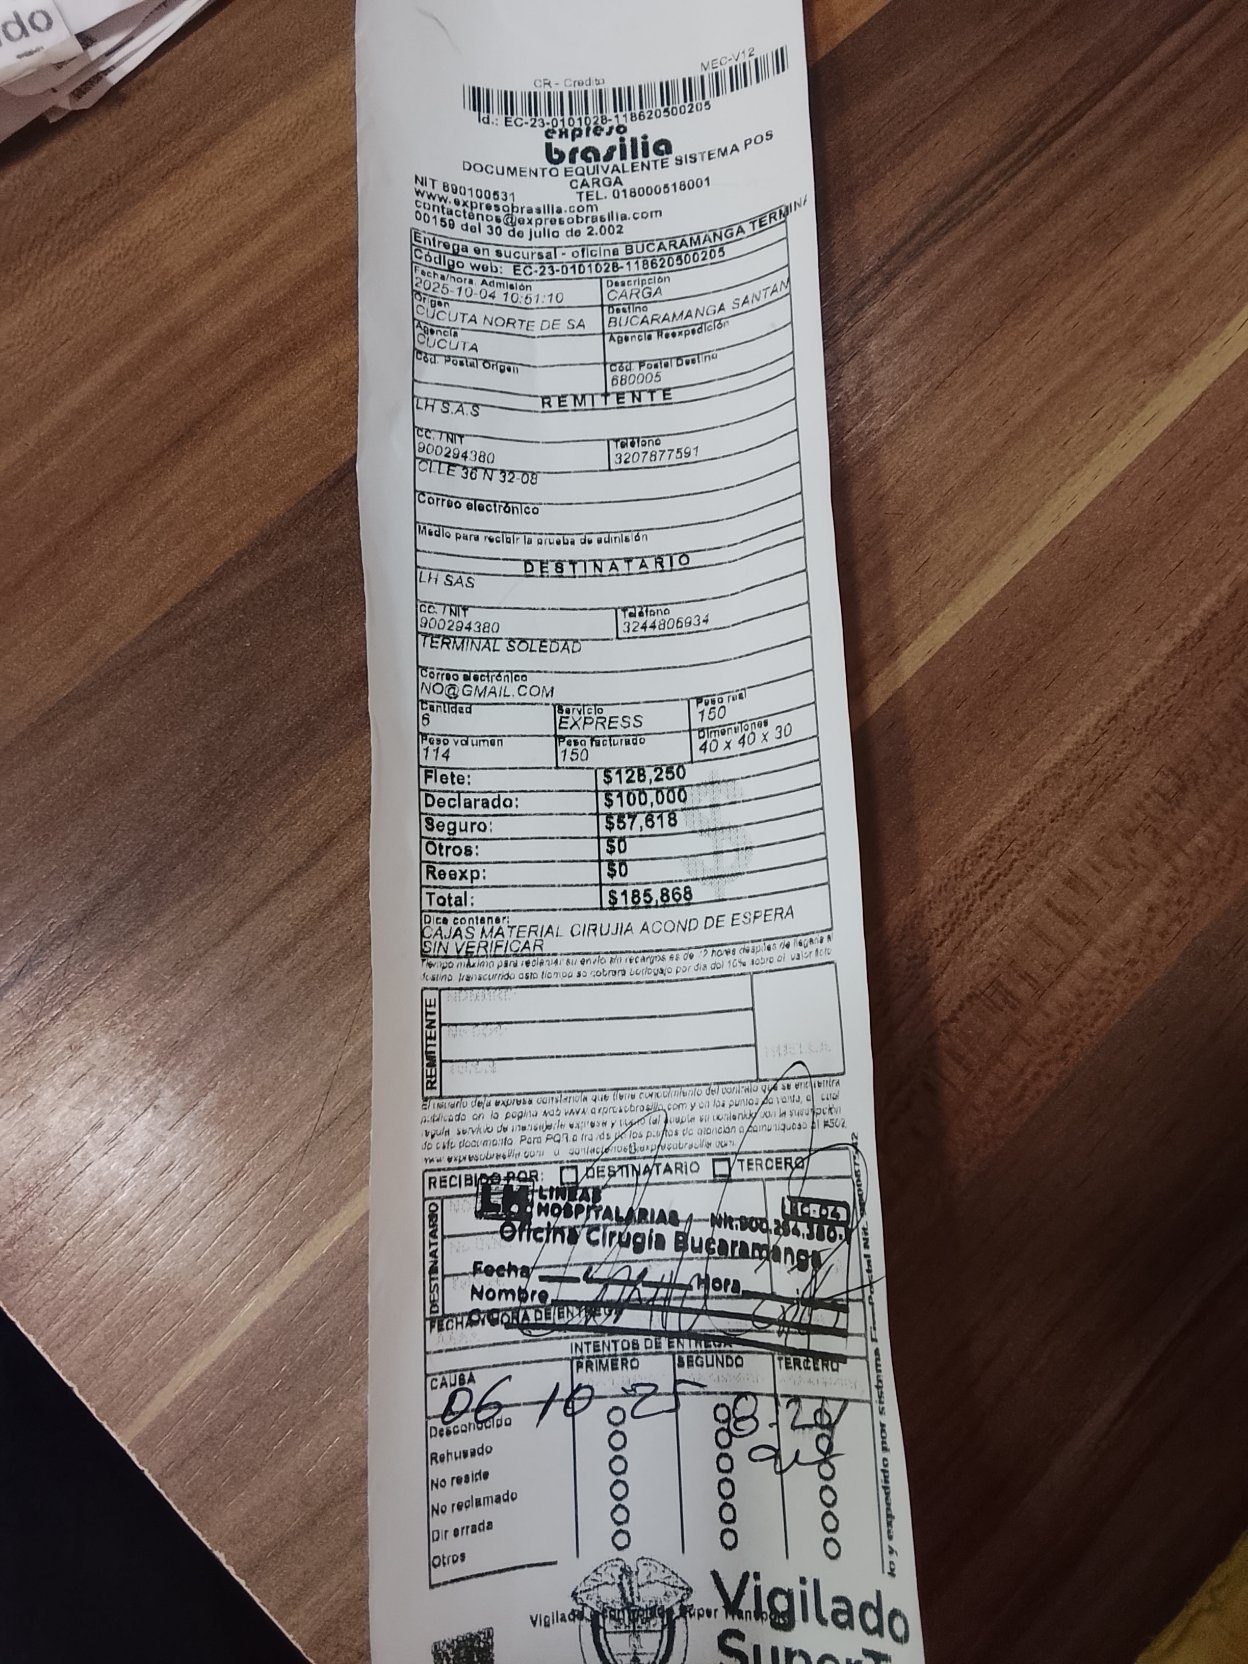 do
CR - Credito
MEC-V12
Id.: EC-23-0101028-118620500205
expreso
brasilia
DOCUMENTO EQUIVALENTE SISTEMA POS
CARGA
NIT 890100531 TEL. 018000518001
www.expresobrasilia.com
contactenos@expresobrasilia.com
00159 del 30 de julio de 2.002
Entrega en sucursal - oficina BUCARAMANGA TERMINA
Código web: EC-23-0101028-118620500205
Fecha/hora Admisión Descripción
2025-10-04 10:51:10 CARGA
Origen Destino
CUCUTA NORTE DE SA BUCARAMANGA SANTAN
Agencia Agencia Reexpedición
CUCUTA
Cód. Postal Origen Cód. Postal Destino
680005
REMITENTE
LH S.A.S
CC. / NIT Teléfono
900294380 3207877591
CLLE 36 N 32-08
Correo electrónico
Medio para recibir la prueba de admisión
DESTINATARIO
LH SAS
CC. / NIT Teléfono
900294380 3244806934
TERMINAL SOLEDAD
Correo electrónico
NO@GMAIL.COM
Cantidad Servicio Peso real
6 EXPRESS 150
Peso volumen Peso facturado Dimensiones
114 150 40 x 40 x 30
Flete: $128,250
Declarado: $100,000
Seguro: $57,618
Otros: $0
Reexp: $0
Total: $185,868
Dice contener:
CAJAS MATERIAL CIRUJIA ACOND DE ESPERA
SIN VERIFICAR
Tiempo máximo para reclamar su envío sin recargos es de 72 horas después de llegada a
destino, transcurrido este tiempo se cobrará bodegaje por día del 10% sobre el valor flete
REMITENTE
HUELLA
El usuario deja expresa constancia que tiene conocimiento del contrato que se encuentra
publicado en la pagina web www.expresobrasilia.com y en los puntos de venta, el cual
regula servicio de mensajería expresa y como tal acepta su contenido con la suscripción
de este documento. Para PQR a través de los puntos de atención o comuníquese al #502,
www.expresobrasilia.com o contactenos@expresobrasilia.com
RECIBIDO POR: DESTINATARIO TERCERO
DESTINATARIO
LH LINEAS
HOSPITALARIAS Nit.900.294.380-
Oficina Cirugia Bucaramanga
Fecha Hora
Nombre
FECHA Y HORA DE ENTREGA
INTENTOS DE ENTREGA
CAUSA PRIMERO SEGUNDO TERCERO
06 10 25 8:20
Desconocido
Rehusado
No reside
No reclamado
Dir errada
Otros
Vigilado
SuperT